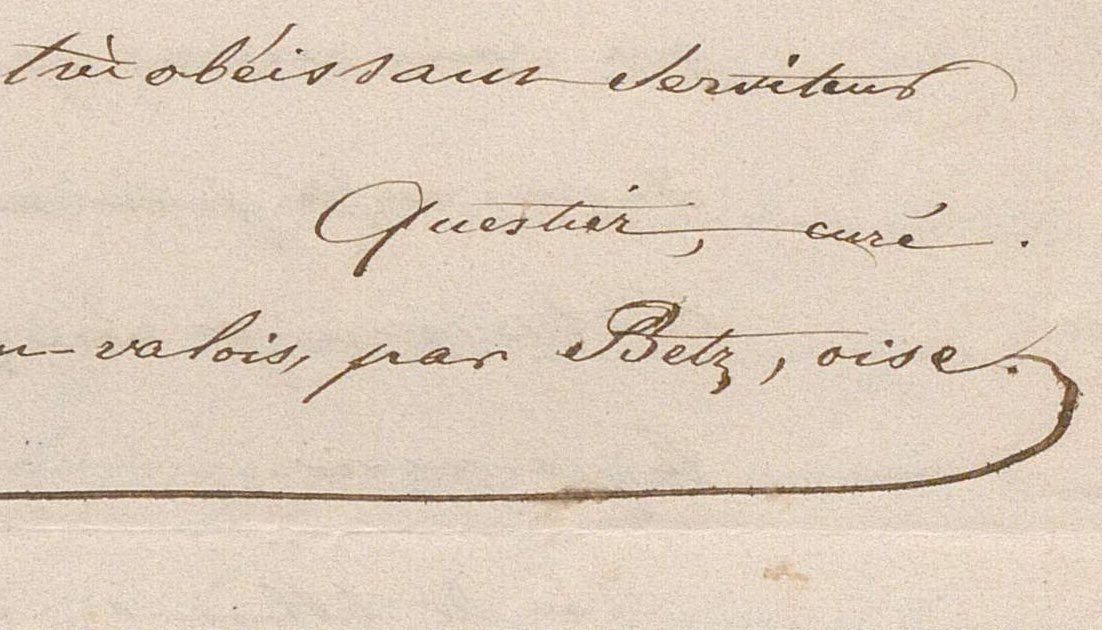 très obéissant Serviteur
Questier, curé.
-valois, par Betz, oise.